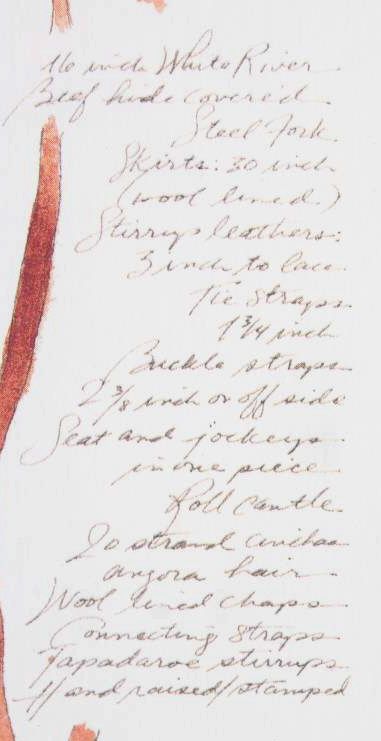 16 inch White River
Beef hide covered
Steel Fork
Skirts: 30 inch
(wool lined)
Stirrup leathers:
3 inch to lace
Tie Straps
1 3/4 inch
Buckle straps
2 3/8 inch on off side
Seat and jockeys
in one piece
Roll Cantle
20 strand cinchas
angora hair
Wool lined chaps
Connecting Straps
Tapadaroe stirrups
Hand raised/stamped